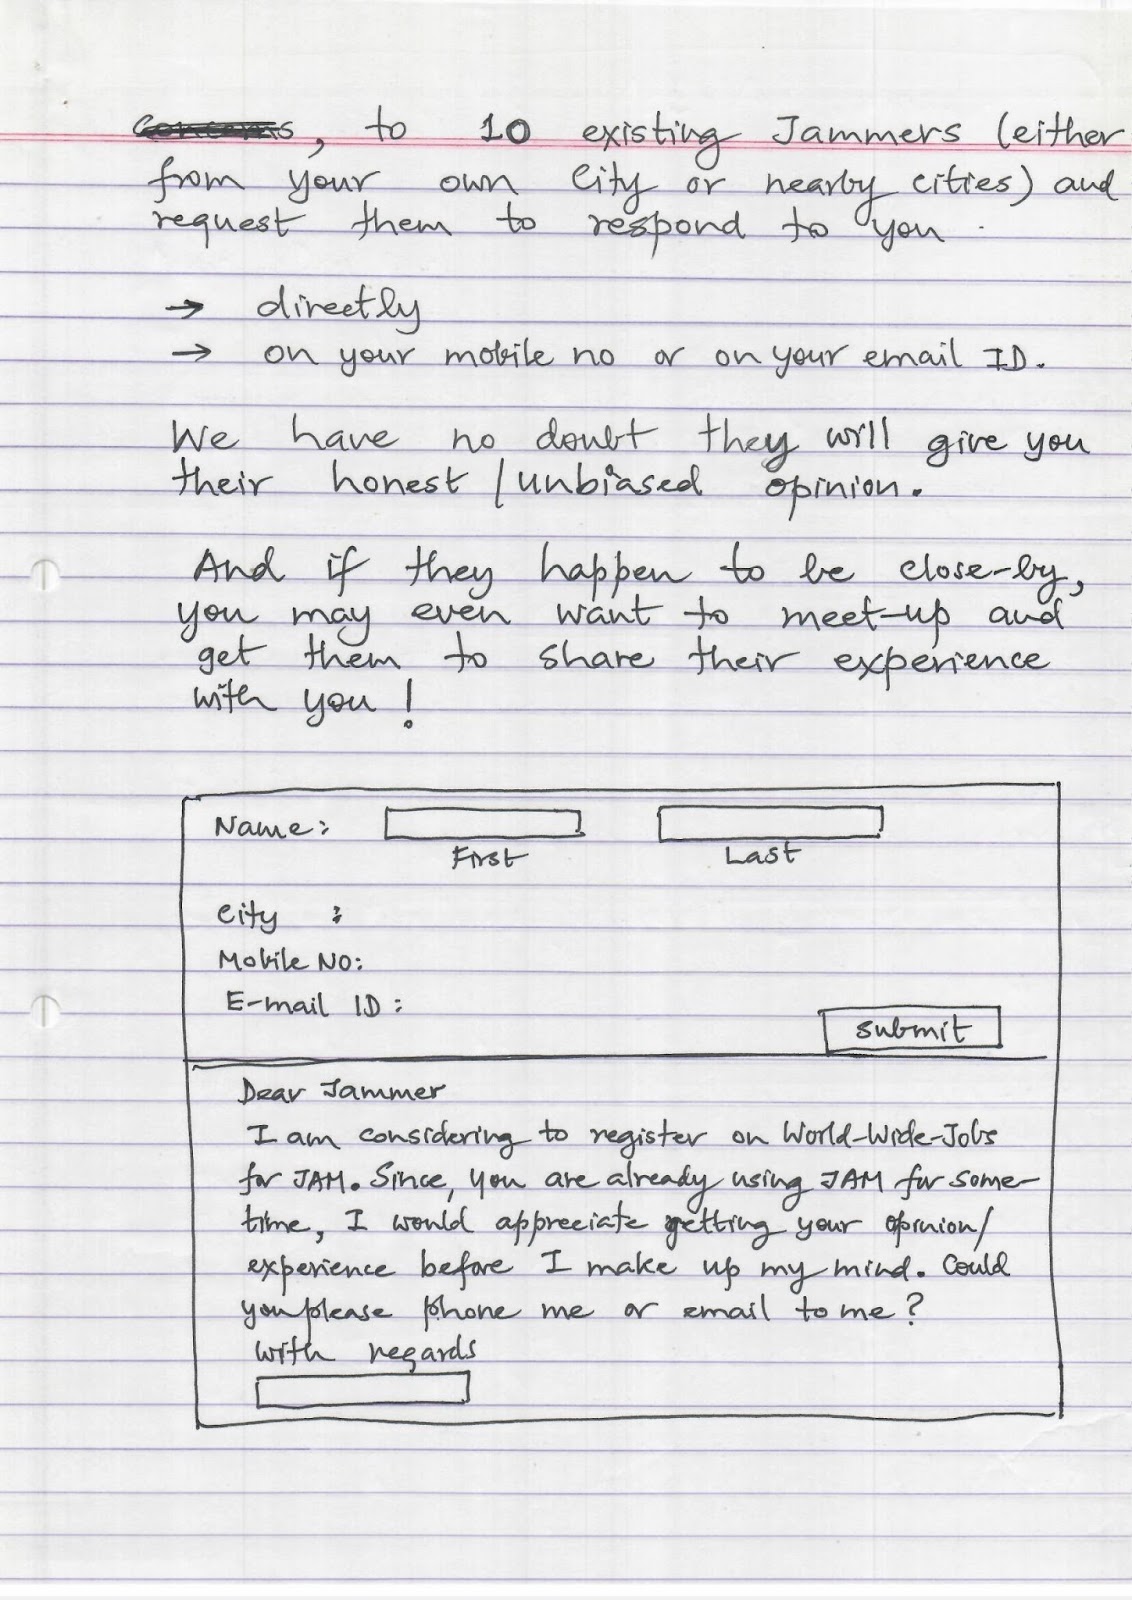 , to 10 existing Jammers (either
from your own City or nearby cities) and
request them to respond to you.
→ directly
→ on your mobile no or on your email ID.
We have no doubt they will give you
their honest / unbiased opinion.
And if they happen to be close-by,
you may even want to meet-up and
get them to share their experience
with you !
Name:
First Last
City :
Mobile NO:
E-mail ID :
Submit
Dear Jammer
I am considering to register on World-Wide-Jobs
for JAM. Since, you are already using JAM for some-
time, I would appreciate getting your opinion/
experience before I make up my mind. Could
you please phone me or email to me ?
with regards